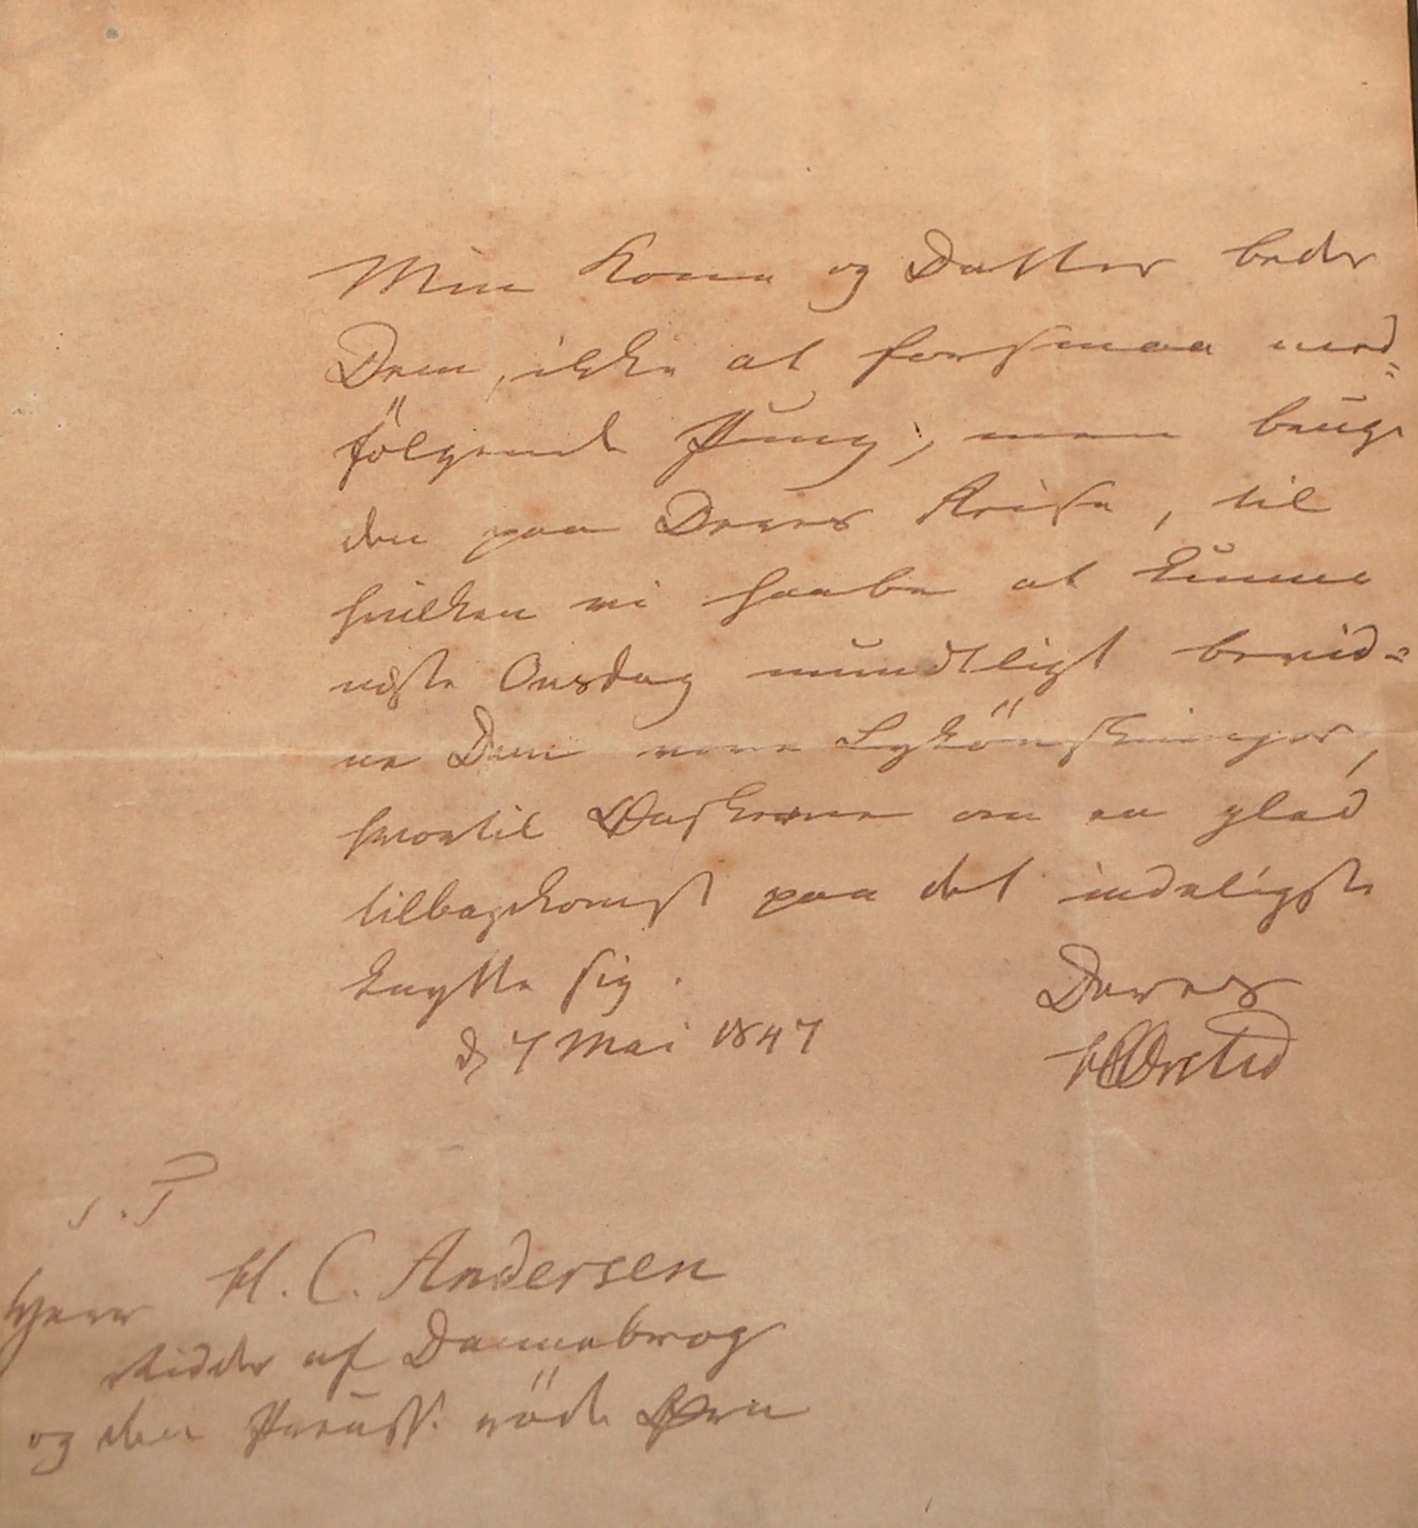 Min Kone og Datter beder
Dem, ikke at forsmaae med-
fölgende Pung, men bruge
den paa Deres Reise, til
hvilken vi haabe at kunne
næste Onsdag mundtligt bevid-
ne Dem vore Lykönskninger,
hvortil Ønskerne om en glad
tilbagekomst paa det inderligste
knytte sig.
Deres
d 7 Mai 1847
HCØrsted
S. T
Herr H. C. Andersen
Ridder af Dannebrog
og den Preuss. röde Ørn